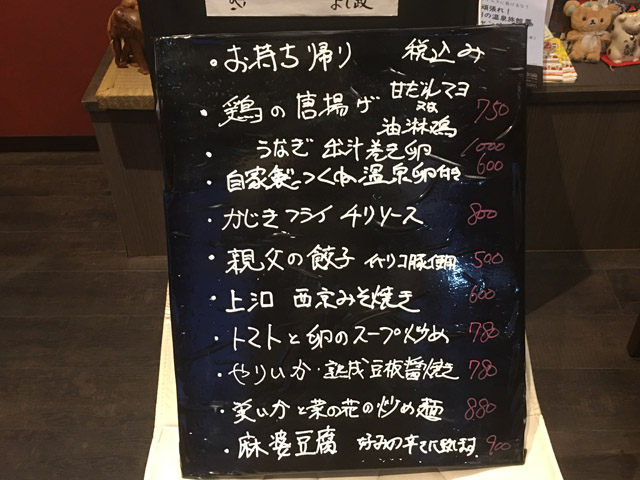 ・お持ち帰り 税込み
・鶏の唐揚げ 甘だれマヨ 又は 油淋鶏 750
・うなぎ 出汁巻き卵 1000
自家製つくね 温泉卵付き 600
・かじきフライ チリソース 800
・親父の餃子 イベリコ豚使用 500
・上沢 西京みそ焼き 600
・トマトと卵のスープ炒め 780
・やりいか・熟成豆板醤焼き 780
・炙いかと菜の花の炒め麺 880
・麻婆豆腐 好みの辛さに致します 900